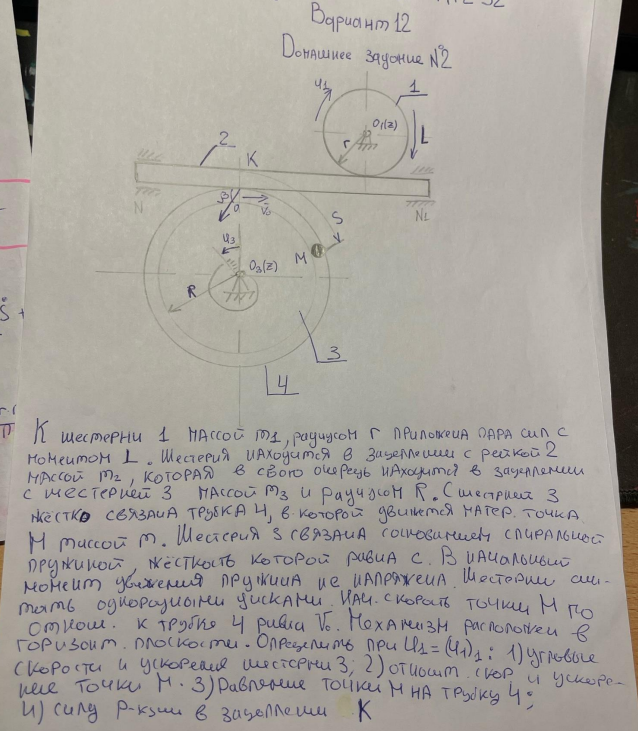 Вариант 12
Домашнее задание №2
φ1
1
O1(z)
r
L
2
K
N
N1
V0
S
φ3
M
O3(z)
R
3
4
К шестерни 1 массой m1, радиусом r приложена пара сил с
моментом L. Шестерня находится в зацеплении с рейкой 2
массой m2, которая в свою очередь находится в зацеплении
с шестерней 3 массой m3 и радиусом R. С шестерней 3
жёстко связана трубка 4, в которой движется матер. точка
M массой m. Шестерня 3 связана с основанием спиральной
пружиной, жёсткость которой равна c. В начальный
момент движения пружина не напряжена. Шестерни счи-
тать однородными дисками. Нач. скорость точки M по
отнош. к трубке 4 равна V0. Механизм расположен в
горизонт. плоскости. Определить при φ1=(φ1)1: 1) угловые
скорости и ускорения шестерни 3; 2) относит. скор и ускоре-
ние точки M. 3) Давление точки M на трубку 4;
4) силу р-кции в зацеплении K